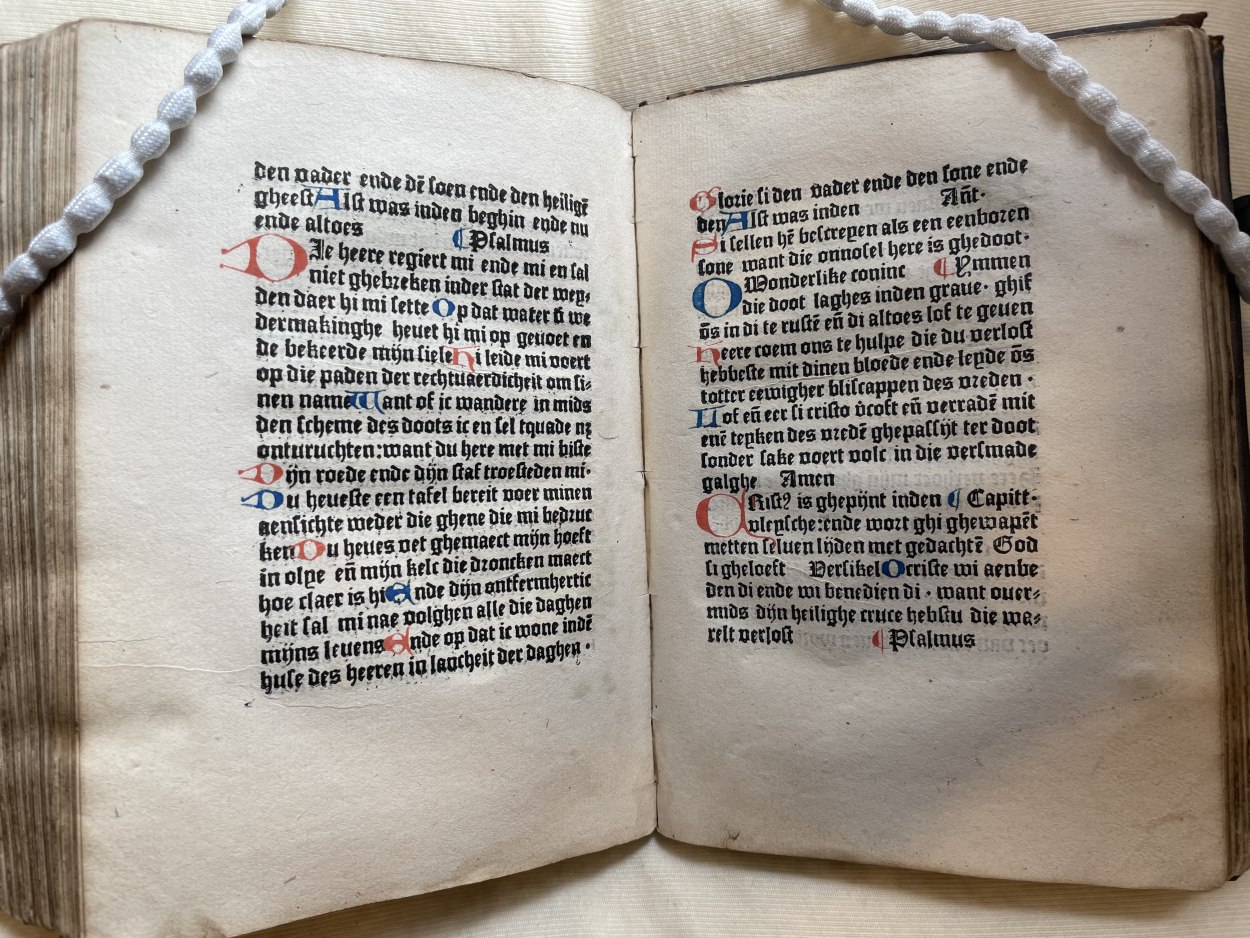 den vader ende dē soen ende den heiligē
gheest Alst was inden beghin ende nu
ende altoes ¶ Psalmus
DJe heere regiert mi ende mi en sal
niet ghebreken inder stat der wey⸗
den daer hi mi sette Op dat water der we
dermakinghe heuet hi mi op geuoet en
de bekeerde mijn siele hi leide mi voert
op die paden der rechtuaerdicheit om si⸗
nen name Want of ic wandere in mids
den scheme des doots ic en sel tquade nz
onturuchten: want du here met mi biste
Dijn roede ende dijn staf troesteden mi·
Du heueste een tafel bereit voer minen
aensichte weder die ghene die mi bedruc
ken Du heues vet ghemaect mijn hoeft
in olye eñ mijn kelc die droncken maect
hoe claer is hi Ende dijn ontfermhertic
heit sal mi nae volghen alle die daghen
mijns leuens Ende op dat ic wone indē
huse des heeren in lancheit der daghen ·
Glorie si den vader ende den sone ende
den Alst was inden Añt·
Si sellen hē bescreyen als een eenboren
sone want die onnosel here is ghedoot·
Wonderlike coninc ¶ Ymmen
O die doot laghes inden graue· ghif
ōs in di te rustē eñ di altoes lof te geuen
heere coem ons te hulpe die du verlost
hebbeste mit dinen bloede ende leyde ōs
totter eewigher bliscappen des vreden ·
Lof eñ eer si cristo v̄coft eñ verradē mit
enē teyken des vredē ghepassijt ter doot
sonder sake voert volc in die versmade
galghe Amen
CRistꝰ is ghepijnt inden ¶ Capitt·
vleysche: ende wort ghi ghewapēt
metten seluen lijden met gedachtē God
si gheloeft Versikel O criste wi aenbe
den di ende wi benedien di · want ouer⸗
mids dijn heilighe cruce hebstu die wa⸗
relt verlost ¶ Psalmus